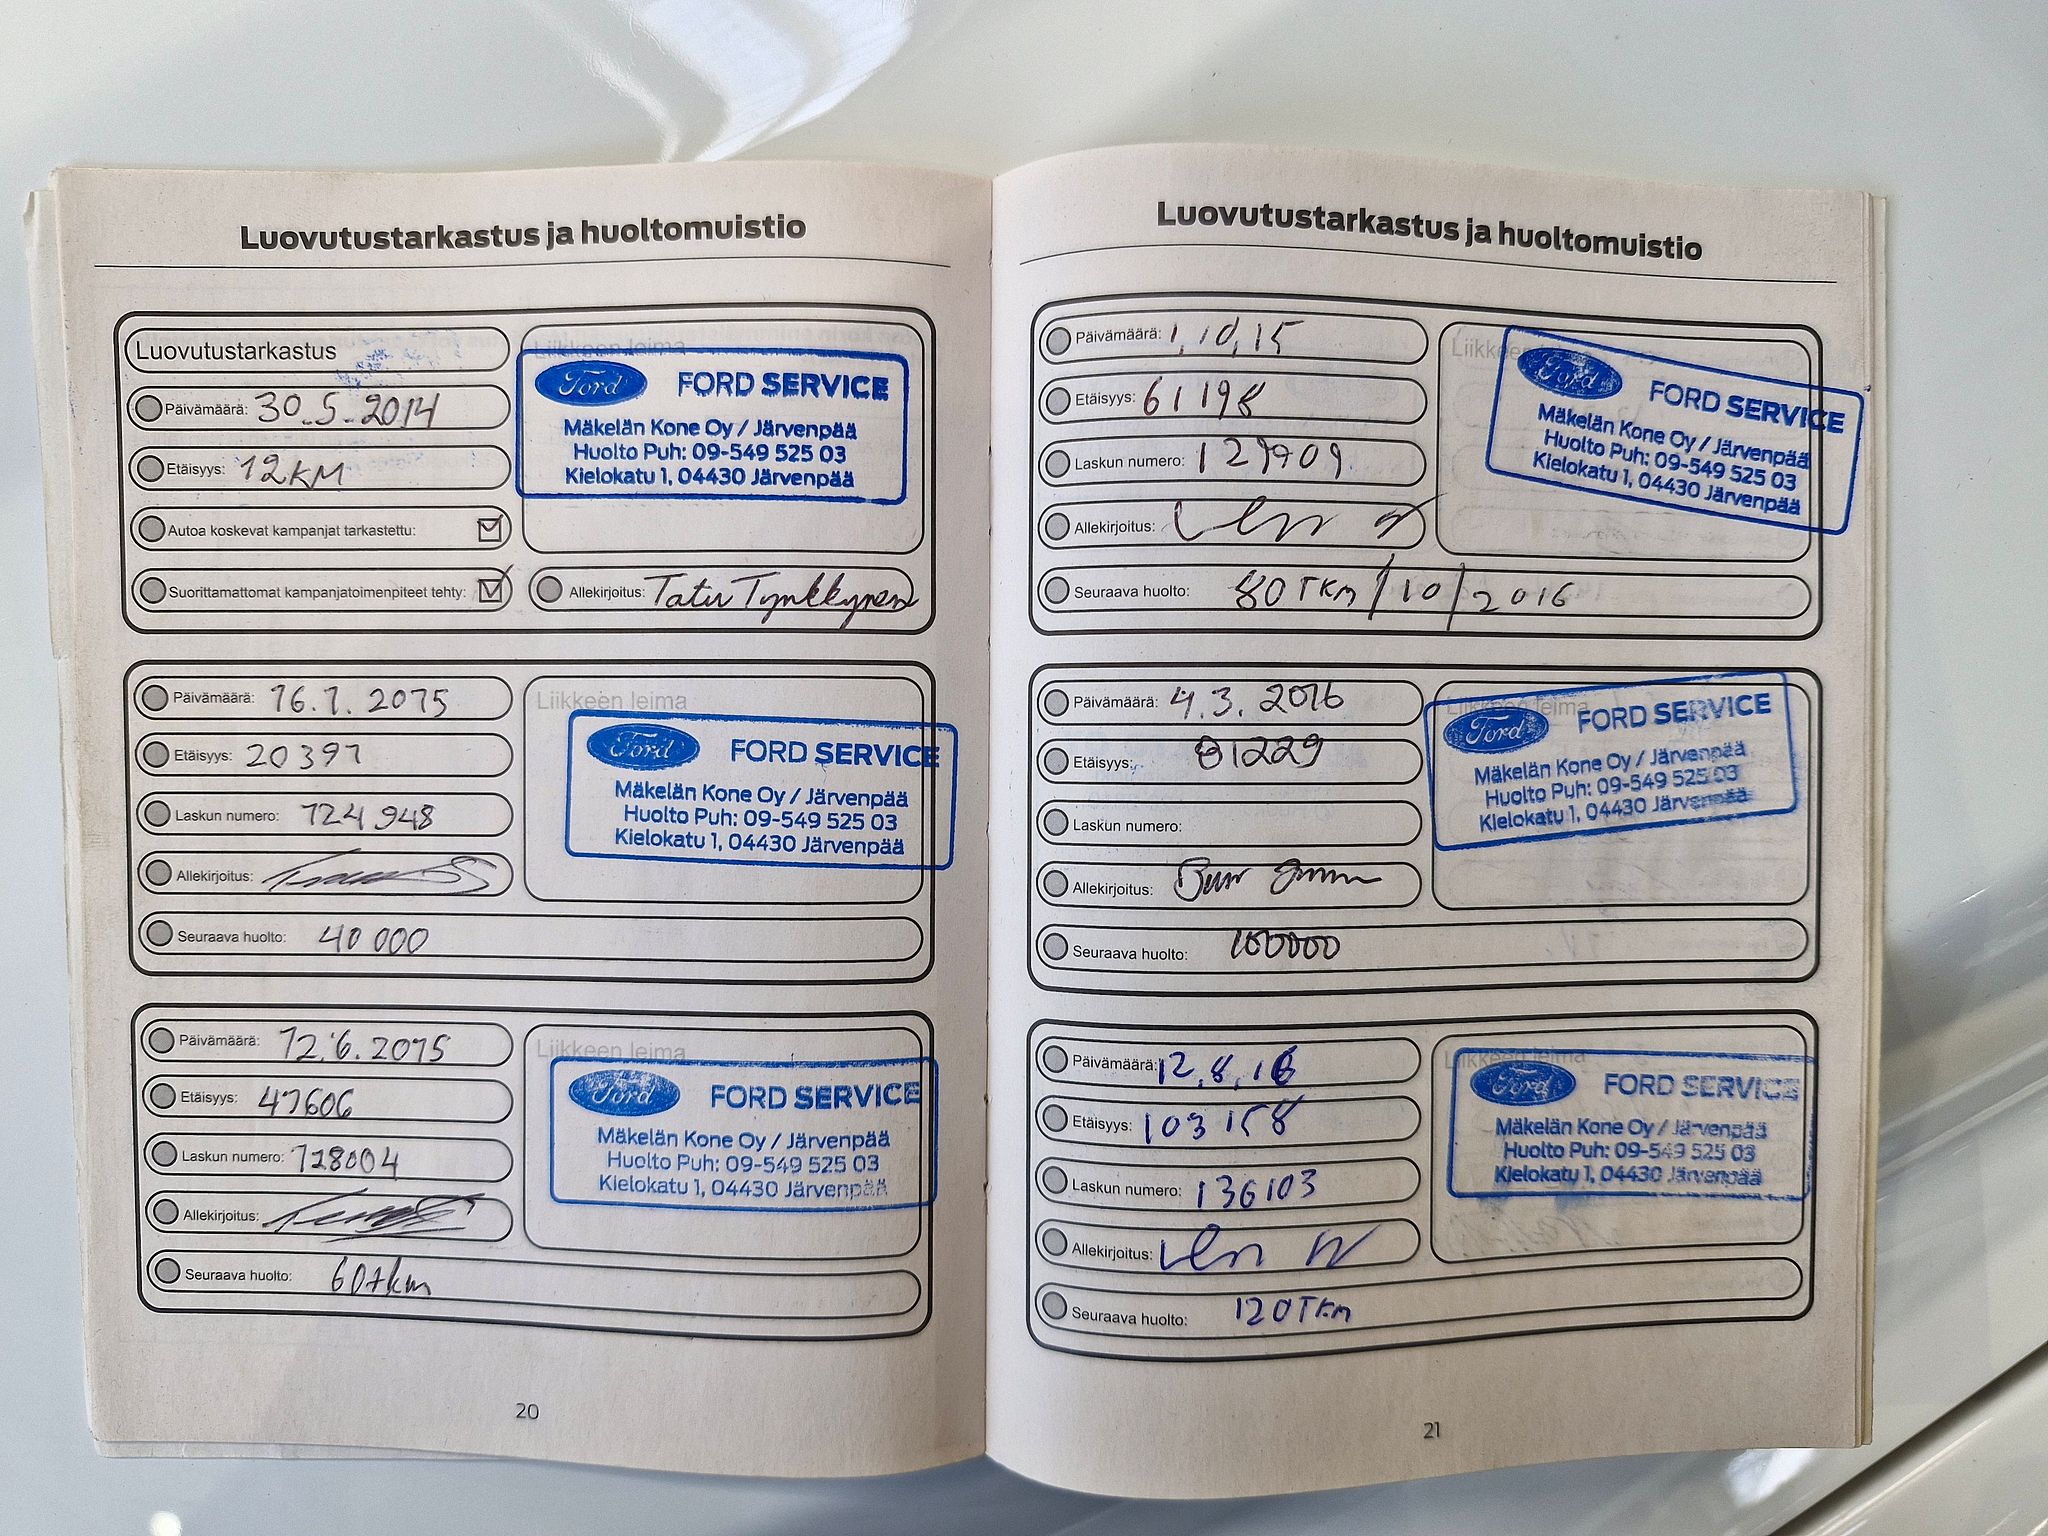 Luovutustarkastus ja huoltomuistio
Luovutustarkastus
Liikkeen leima
Päivämäärä: 30.5.2014
Etäisyys: 12KM
Ford FORD SERVICE
Mäkelän Kone Oy / Järvenpää
Huolto Puh: 09-549 525 03
Kielokatu 1, 04430 Järvenpää
Autoa koskevat kampanjat tarkastettu:
Suorittamattomat kampanjatoimenpiteet tehty:
Allekirjoitus: Tatu Tynkkynen
Päivämäärä: 16.1.2015
Etäisyys: 20391
Laskun numero: 124948
Allekirjoitus:
Seuraava huolto: 40 000
Liikkeen leima
Ford FORD SERVICE
Mäkelän Kone Oy / Järvenpää
Huolto Puh: 09-549 525 03
Kielokatu 1, 04430 Järvenpää
Päivämäärä: 12.6.2015
Etäisyys: 41606
Laskun numero: 128004
Allekirjoitus:
Seuraava huolto: 60tkm
Liikkeen leima
Ford FORD SERVICE
Mäkelän Kone Oy / Järvenpää
Huolto Puh: 09-549 525 03
Kielokatu 1, 04430 Järvenpää
20
Luovutustarkastus ja huoltomuistio
Päivämäärä: 1,10,15
Etäisyys: 61198
Laskun numero: 129909
Allekirjoitus:
Seuraava huolto: 80TKm/10/2016
Liikkeen leima
Ford FORD SERVICE
Mäkelän Kone Oy / Järvenpää
Huolto Puh: 09-549 525 03
Kielokatu 1, 04430 Järvenpää
Päivämäärä: 4.3.2016
Etäisyys: 81229
Laskun numero:
Allekirjoitus:
Seuraava huolto: 100000
Liikkeen leima
Ford FORD SERVICE
Mäkelän Kone Oy / Järvenpää
Huolto Puh: 09-549 525 03
Kielokatu 1, 04430 Järvenpää
Päivämäärä: 12,8,16
Etäisyys: 103158
Laskun numero: 136103
Allekirjoitus:
Seuraava huolto: 120TKm
Liikkeen leima
Ford FORD SERVICE
Mäkelän Kone Oy / Järvenpää
Huolto Puh: 09-549 525 03
Kielokatu 1, 04430 Järvenpää
21